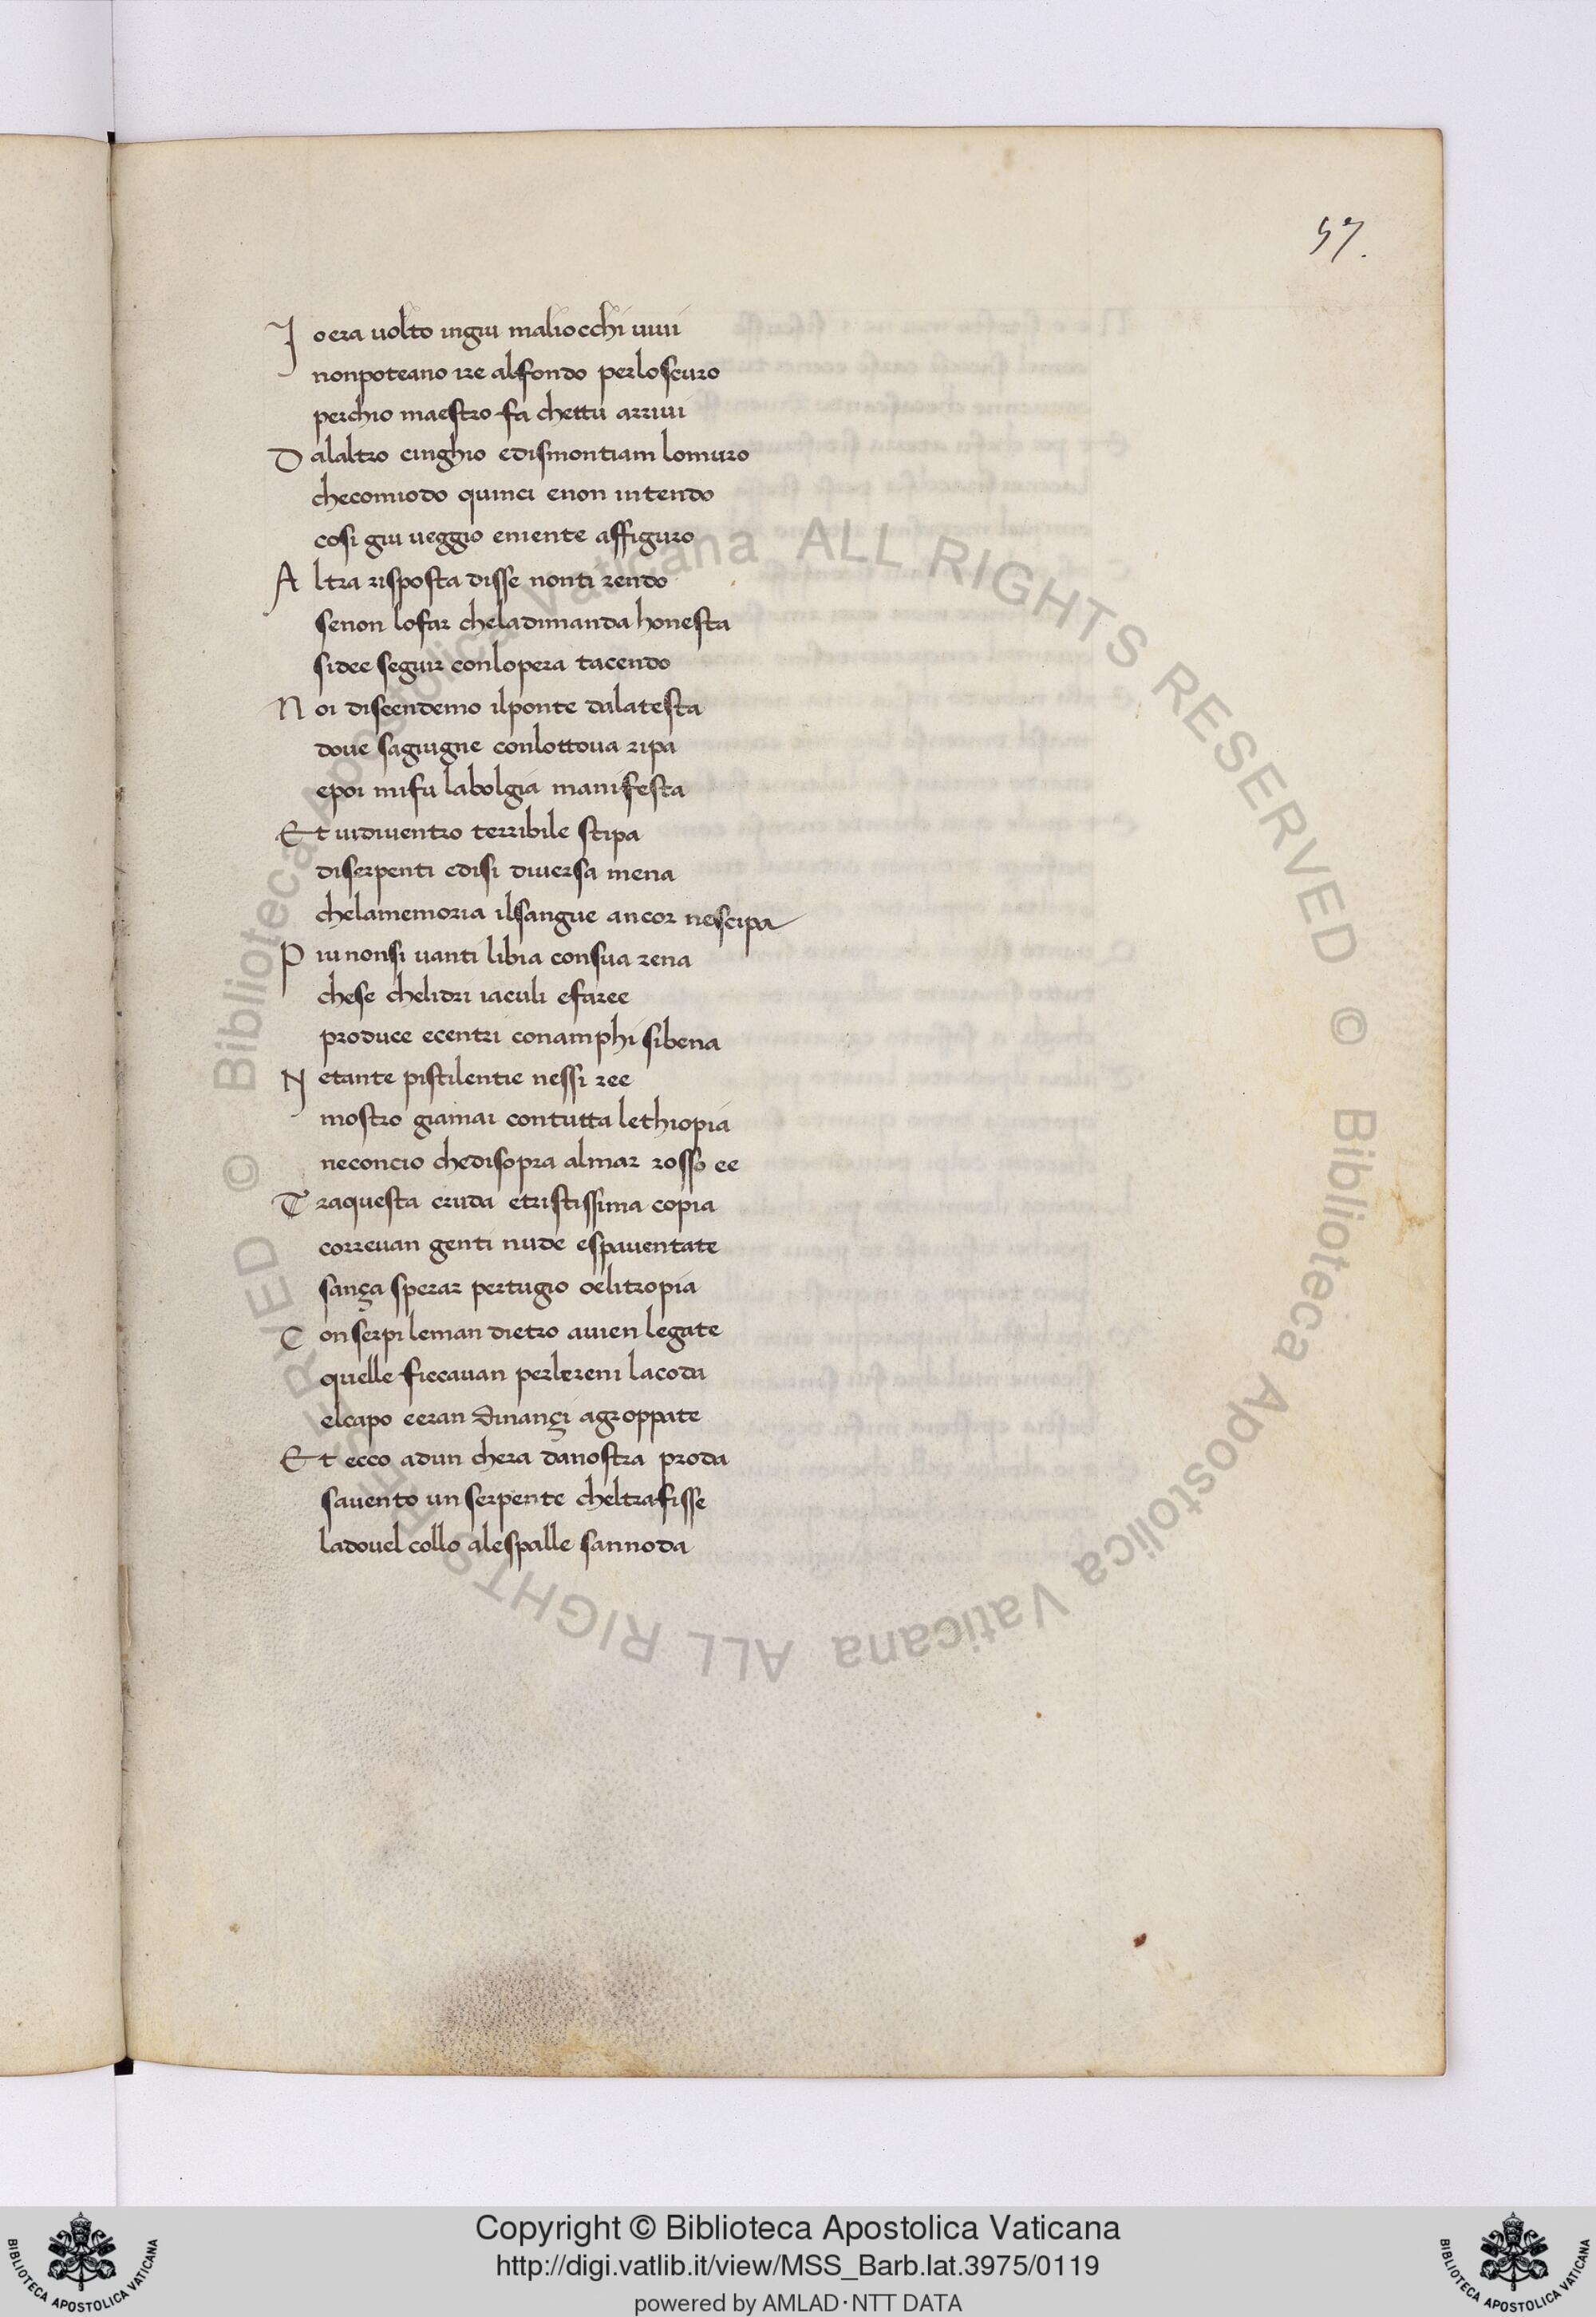 57.
I oera uolto ingiu maliocchi uiui
nonpoteano ire alfondo perloscuro
perchio maestro fa chettu arriui
D alaltro cinghio edismontiam lomuro
checomiodo quinci enon intendo
cosi giu ueggio eniente affiguro
A ltra risposta disse nonti rendo
senon lofar cheladimanda honesta
sidee seguir conlopera tacendo
N oi discendemo ilponte dalatesta
doue sagiugne conlottoua ripa
epoi mifu labolgia manifesta
E t uidiuentro terribile stipa
diserpenti edisi diuersa mena
chelamemoria ilsangue ancor nescipa
P iu nonsi uanti libia consua rena
chese chelidri iaculi efaree
produce ecentri conamphi sibena
N etante pistilentie nessi ree
mostro giamai contutta lethiopia
neconcio chedisopra almar rosso ee
T raquesta cruda etristissima copia
correuan genti nude espauentate
sança sperar pertugio oelitropia
C on serpi leman dietro auien legate
quelle ficcauan perlereni lacoda
elcapo eeran dinançi agroppate
E t ecco adun chera danostra proda
sauento un serpente cheltrafisse
ladouel collo alespalle sannoda
© Biblioteca Apostolica Vaticana ALL RIGHTS RESERVED © Biblioteca Apostolica Vaticana ALL RIGHTS RESERVED
Copyright © Biblioteca Apostolica Vaticana
http://digi.vatlib.it/view/MSS_Barb.lat.3975/0119
powered by AMLAD·NTT DATA
BIBLIOTECA APOSTOLICA VATICANA
BIBLIOTECA APOSTOLICA VATICANA